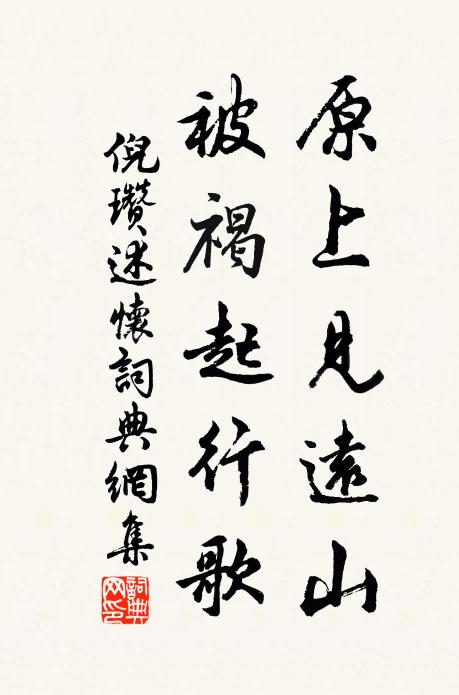 原上見遠山
被褐起行歌
倪瓚述懷詞典網集
詞典網印